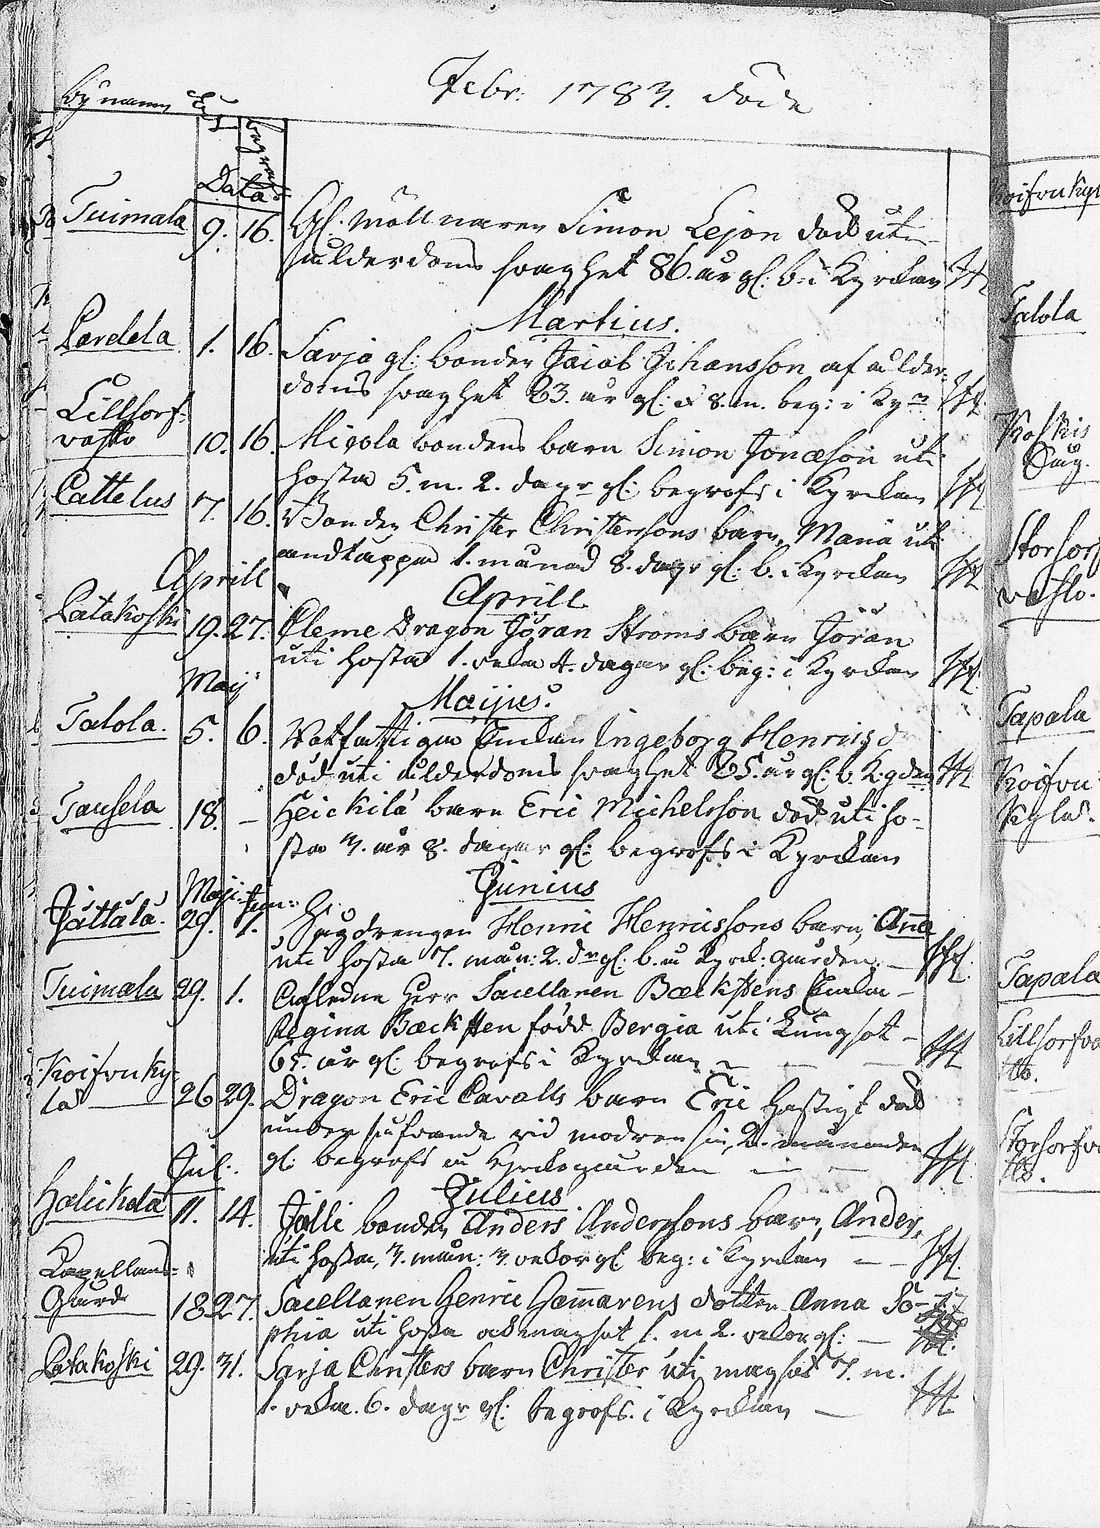 Febr. 1783. döde
Bÿ namn
Data
Tuimala 9. 16. Gl. Möllnaren Simon Lejon död uti
ålderdoms svaghet 86. år gl: b. i Kyrckan
Martius.
Pardela 1. 16. Sarja gl: bonden Jacob Johansson af ålder-
doms svaghet 83. år gl: & 8. m. beg: i Kyrn
Lillsorf-
vasto 10. 16. Micola bondens barn Simon Jonæson uti
hosta 5. m. 2. dagr gl: begrofs i Kyrckan
Cattelus 7. 16. Bonden Christer Christerssons barn, Maria uti
andtäppa 1. månad 8. dagr gl: b. i Kyrckan
Aprill
Aprill
Patakoski 19. 27. Cleme Dragon Jöran Ströms barn Jöran
uti hosta 1. veka 4. dagar gl: beg: i Kyrckan
Maij
Maijus.
Talola. 5. 6. Rotfattiga Enkan Ingeborg Henricsd
död uti ålderdoms svaghet 85. år gl: b. K:gden
Tansela 18. – Heickilä barn Eric Michelsson död uti ho-
sta 3. år 8. dagar gl: begrofs i Kyrckan
Junius
Maji. Jun:
Jättälä. 29. 1. Henric Henricssons barn, Anna
uti hosta 7. mån: 2. dr gl: b. å Kyrck: gården –
Tuimala 29. 1. Aflednе Herr Sacellanen Bæckstens Enka –
Regina Bæcksten född Bergia uti Lungsot –
65. år gl: begrofs i Kyrckan – – –
Koifvuky-
lä 26 29. Dragon Eric Cavalls barn Eric hastigt död
under sofvande vid modren sin, 2. månader
gl: begrofs å Kyrckogården – –
Jul:
Julius
Halickala 11. 14. Jälli bonden Anders Anderssons barn, Anders,
uti hosta, 3. mån: 3. vekor gl: beg: i Kyrckan – –
Capellans=
Gård 18 27. Sacellanen Henric Hammarens dotter Anna So-
phia uti hosta och magsot 1. m 2. vekor gl: –
Patakoski 29. 31. Sarja Christers barn Christer uti magsot 7. m.
1. veka. 6. dagr gl: begrofs i Kyrckan –
Koifvukyl
Talola
Koskis
Storsorf
vasto.
Tapala
Koifvu
Kylä.
Tapala
Lillsorfva
Storsorfva